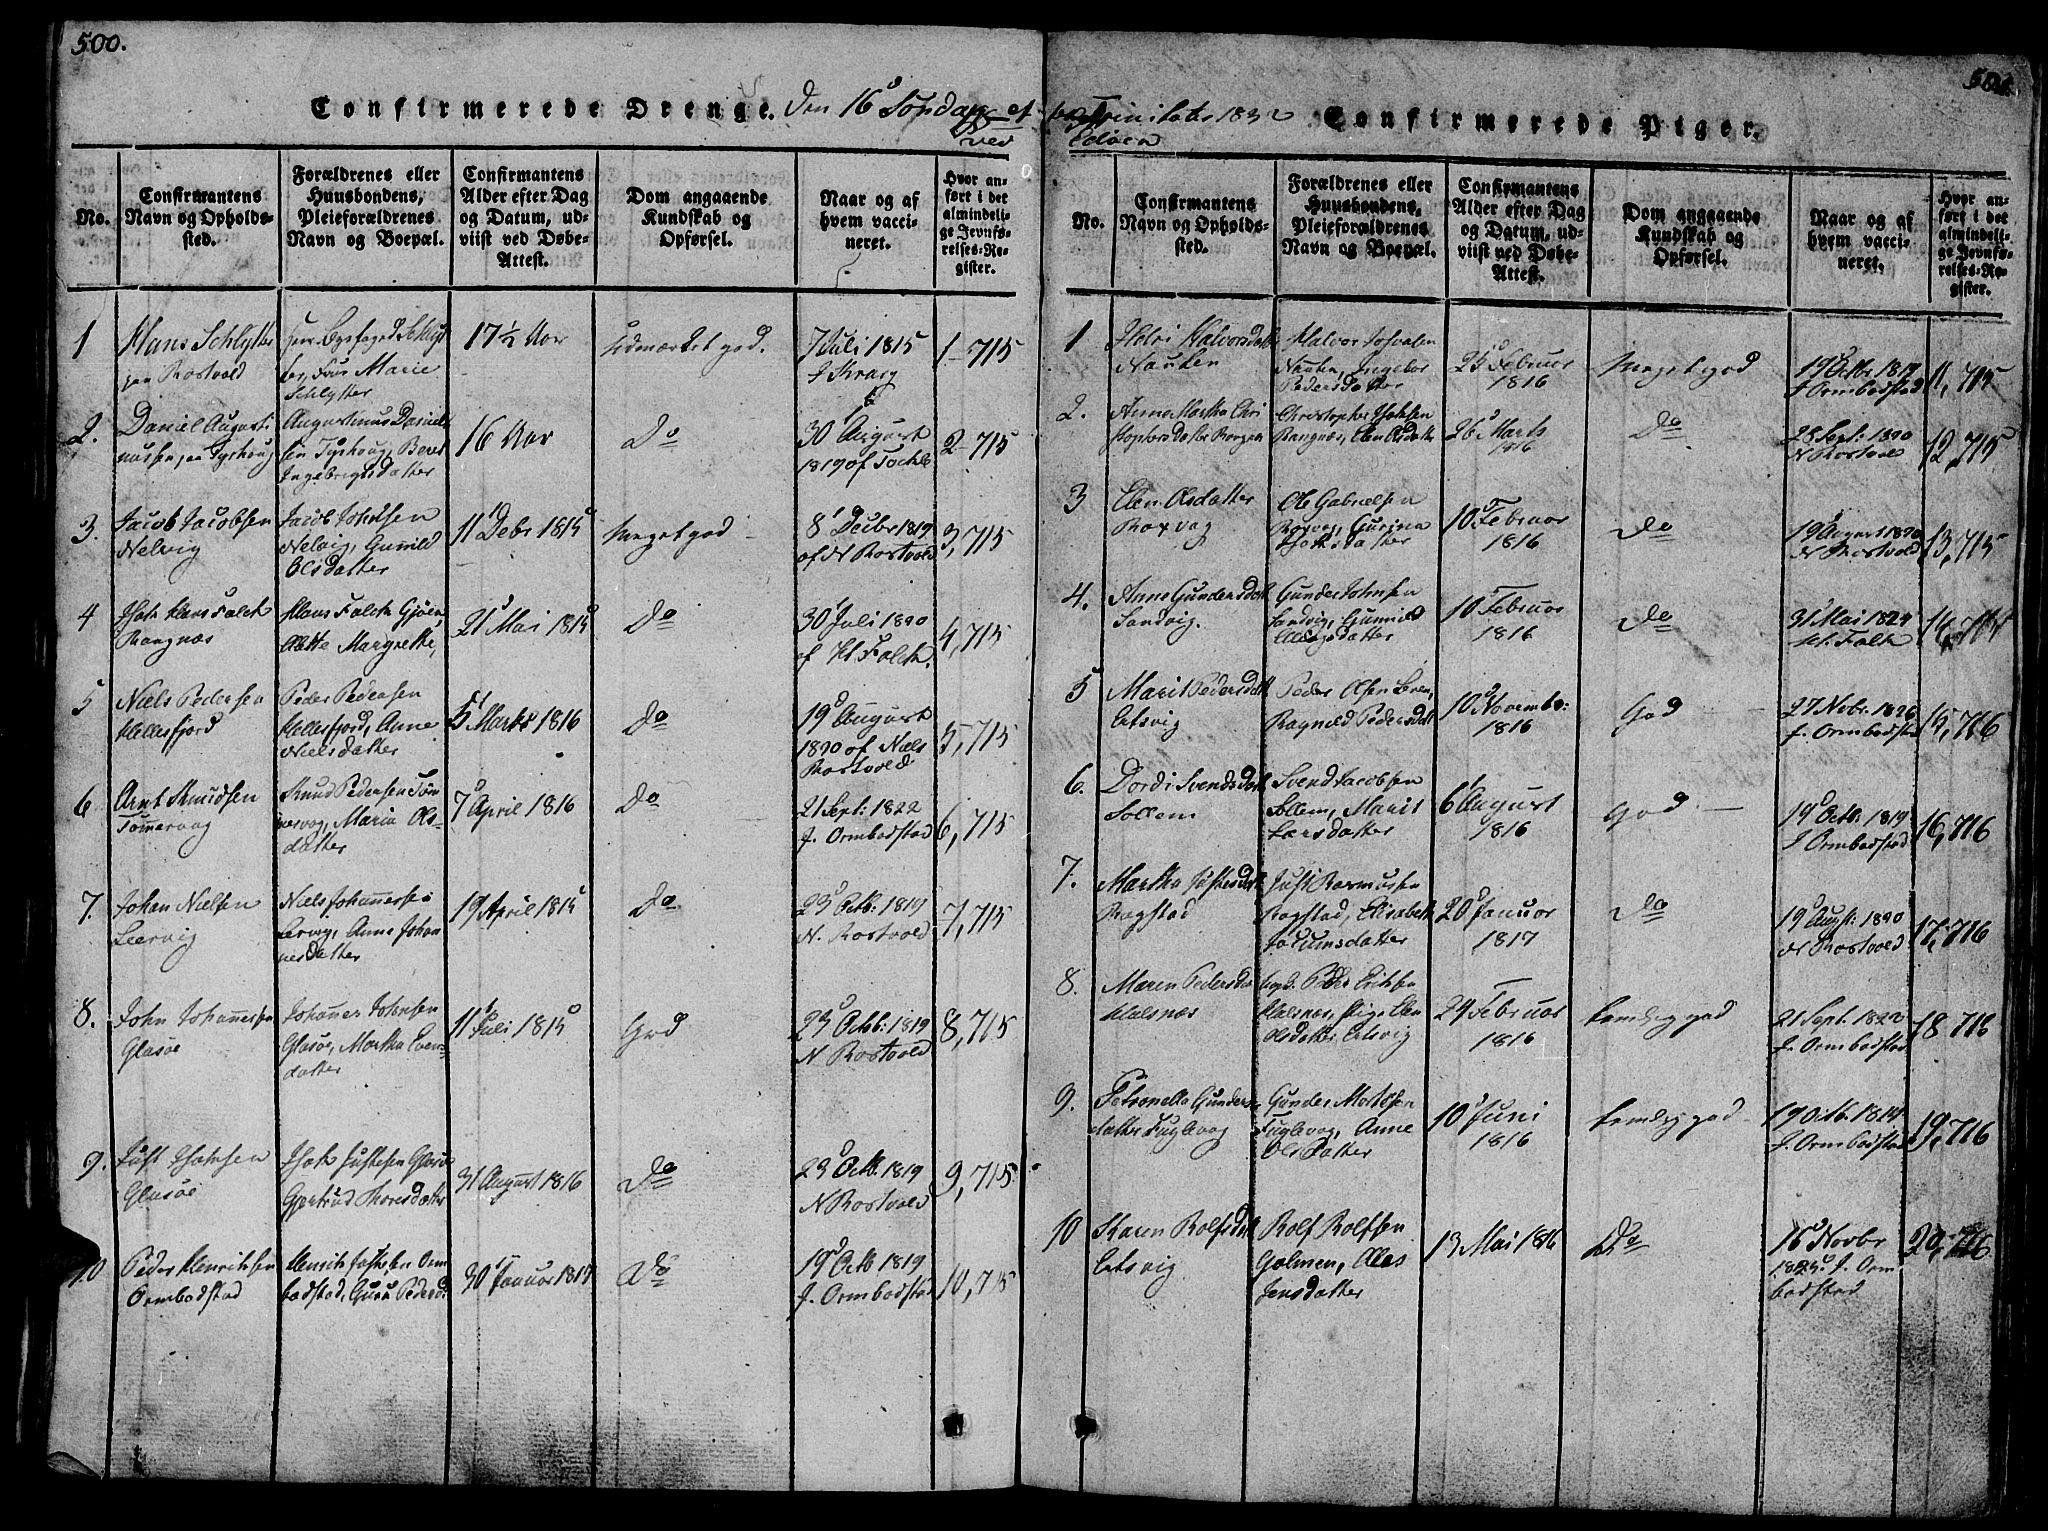 500.
Confirmerede Drenge. Den 16d Søndag ef-
ved
No.
Confirmantens
Navn og Opholds-
sted.
Forældrenes eller
Huusbondens,
Pleieforældrenes
Navn og Boepæl.
Confirmantens
Alder efter Dag
og Datum, ud-
viist ved Døbe-
Attest.
Dom angaaende
Kundskab og
Opførsel.
Naar og af
hvem vacci-
neret.
Hvor an-
ført i det
almindeli-
ge Jevnfø-
relses-Re-
gister.
1
Hans Schlytter
paa Rostvold
Schlyt
ter, Fru Marie
Schlytter
17½ Aar
Udmærket god.
7 Juli 1815
1-715
2.
Daniel Augusti
nussen, paa Tyrhoug
Augustinus Daniel
sen Tyrhoug, Beret
Ingebrigtsdatter
16 Aar
Do
30 August
1819 of
2-715
3.
Jacob Jacobsen
Nelvig
Jacob Johnsen
Nelvig, Gunnild
Olsdatter
11 Debr 1815
Meget god
8 Decbr 1819
of N Rostvold
3,715
4
Hans Falch
Rangnæs
Hans Falch
Margrethe,
21 Mai 1815
Do
30 Juli 1820
of H Falch.
4,715
5
Niels Pedersen
Hellesfjord
Peder Pedersen
Hellesfjord, Anne
Nielsdatter
5 Marts 1816
Do
19d August
1820 of Niels
Rostvold
5,715
6
Arnt Knudsen
Tømmervaag
Knud Pedersen Tøm
mervog, Maria Ols-
datter
7 April 1816
Do
21 Sept: 1822
J. Ormbodstad
6,715
7.
Johan Nielsen
Leervig
Niels Johannessen
Lervig, Anne Johan
nesdatter
19 April 1815
Do
23 Octb: 1819
N. Rostvold
7,715
8.
John Johannessen
Glasøe
Johannes Johnsen
Glasøe, Martha Even-
datter
11 Juli 1815
God
23 Octb: 1819
N Rostvold
8,715
9.
Just
Glasøe
Justesen Glasøe
Gjertrud Thoresdatter
31 August 1816
Do
23 Octb. 1819
N Rostvold
9,715
10
Peder Henrichsen
Ormbodstad
Henrich Justesen Orm
bodstad, Guru Pedersd:
30 Januar 1817
Do
19d Octb 1819
J. Ormbodstad
10,715
501.
ter Trinitatis 1832 Confirmerede Piger.
Edøen
No.
Confirmantens
Navn og Opholds-
sted.
Forældrenes eller
Huusbondens,
Pleieforældrenes
Navn og Boepæl.
Confirmantens
Alder efter Dag
og Datum, ud-
viist ved Døbe-
Attest.
Dom angaaende
Kundskab og
Opførsel.
Naar og af
hvem vacci-
neret.
Hvor an-
ført i det
almindeli-
ge Jevnfø-
relses-Re-
gister.
1
Halvorsdatt
Nauten
Halvor
Nauten, Ingebor
Pedersdatter
25 Februar
1816
Meget god
19 Octbr. 1819
J Ormbodstad
11,715
2.
Anne Martha Chri
stophersdatter Rangnæs
Christopher
Rangnæs, Elen Olsdatter
26 Marts
1816
Do
28 Sept: 1820
N Rostvold
12,715
3
Elen Olsdatter
Roxvag
Ole Gabrielsen
Roxvag, Gurina
10 Februar
1816
Do
19 August 1820
N Rostvold
13,715
4.
Anne Gundersdatt
Sandvig.
Gunder Johnsen
Sandvig, Gunnild
10 Februar
1816
Do
31 Mai 1824
H. Falch
14,715
5
Marit Pedersdatt
Ertsvig
Peder Olsen
Ragnild Pedersdatt
10 Novembr:
1816
God
27 Novbr. 1826
J. Ormbodstad
15,716
6.
Dordi Svendsdatt
Sollem
Svend Jacobsen
Sollem, Marit
Larsdatter
6 August
1816
God
19 Octb: 1819
J Ormbodstad
16,716
7.
Martha Justesdatt
Rogstad
Just Rasmussen
Rogstad, Elisabeth
Jocumsdatter
20 Januar
1817
Do
19 Augst: 1820
N Rostvold
17,716
8.
Maren Pedersda
Halsnæs
Peder Erichsen
Halsnæs, Pige Elen
Olsdatter Ertsvig
24 Februar
1816
temlig god
21 Sept: 1822
J. Ormbodstad
18 716
9.
Petronella Gunders-
datter Fuglevog
Gunder Matisen
Fuglevog, Anne
Olsdatter
10 Juni
1816
temlig god
19 Octb. 1819
J. Ormbodstad
19,716
10
Karen Rolfsdatt
Ertsvig
Rolf Rolfsen
Golmen,
Jensdatter
13 Mai 1816
Do
16 Novbr
1823. J. Orm
bodstad
20,716